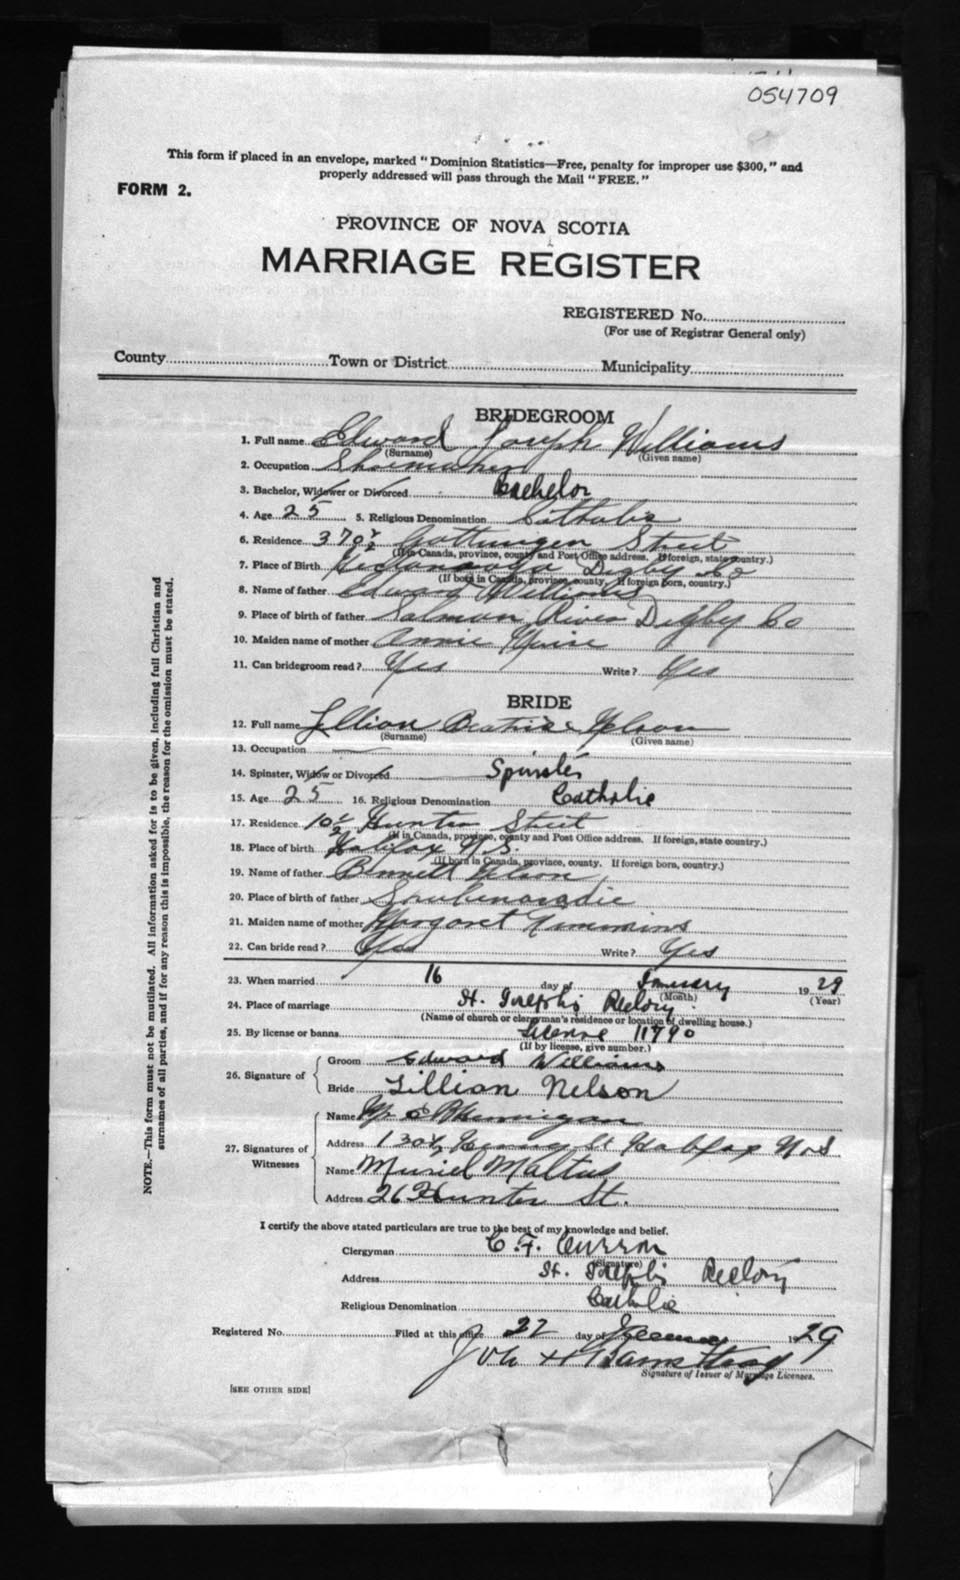 054709
This form if placed in an envelope, marked "Dominion Statistics—Free, penalty for improper use $300," and
properly addressed will pass through the Mail "FREE."
FORM 2.
PROVINCE OF NOVA SCOTIA
MARRIAGE REGISTER
REGISTERED No.
(For use of Registrar General only)
County Town or District Municipality
BRIDEGROOM
1. Full name Edward Joseph Williams
(Surname) (Given name)
2. Occupation Shoemaker
3. Bachelor, Widower or Divorced Bachelor
4. Age 25 5. Religious Denomination Catholic
6. Residence 370½ Gottingen Street
(If in Canada, province, county and Post Office address. If foreign, state country.)
7. Place of Birth Digby Co
(If born in Canada, province, county. If foreign born, country.)
8. Name of father Edward Williams
9. Place of birth of father Salmon River Digby Co
10. Maiden name of mother Annie
11. Can bridegroom read? Yes Write? Yes
BRIDE
12. Full name Lillian Beatrice Nelson
(Surname) (Given name)
13. Occupation —
14. Spinster, Widow or Divorced Spinster
15. Age 25 16. Religious Denomination Catholic
17. Residence 10½ Hunter Street
(If in Canada, province, county and Post Office address. If foreign, state country.)
18. Place of birth Halifax N.S.
(If born in Canada, province, county. If foreign born, country.)
19. Name of father Bennett Nelson
20. Place of birth of father Shubenacadie
21. Maiden name of mother Margaret Nimmins
22. Can bride read? Yes Write? Yes
23. When married 16 day of January 1929
(Month) (Year)
24. Place of marriage St. Joseph's Rectory
(Name of church or clergyman's residence or location of dwelling house.)
25. By license or banns License 11790
(If by license, give number.)
26. Signature of Groom Edward Williams
Bride Lillian Nelson
27. Signatures of Witnesses
Name
Address 130½ St Halifax N.S.
Name Muriel Maltus
Address 26 Hunter St.
I certify the above stated particulars are true to the best of my knowledge and belief.
Clergyman C. F. Curran
(Signature)
Address St. Joseph's Rectory
Religious Denomination Catholic
Registered No. Filed at this office 22 day of 1929
Signature of Issuer of Marriage Licenses.
[SEE OTHER SIDE]
NOTE.—This form must not be mutilated. All information asked for is to be given, including full Christian and
surnames of all parties, and if for any reason this is impossible, the reason for the omission must be stated.